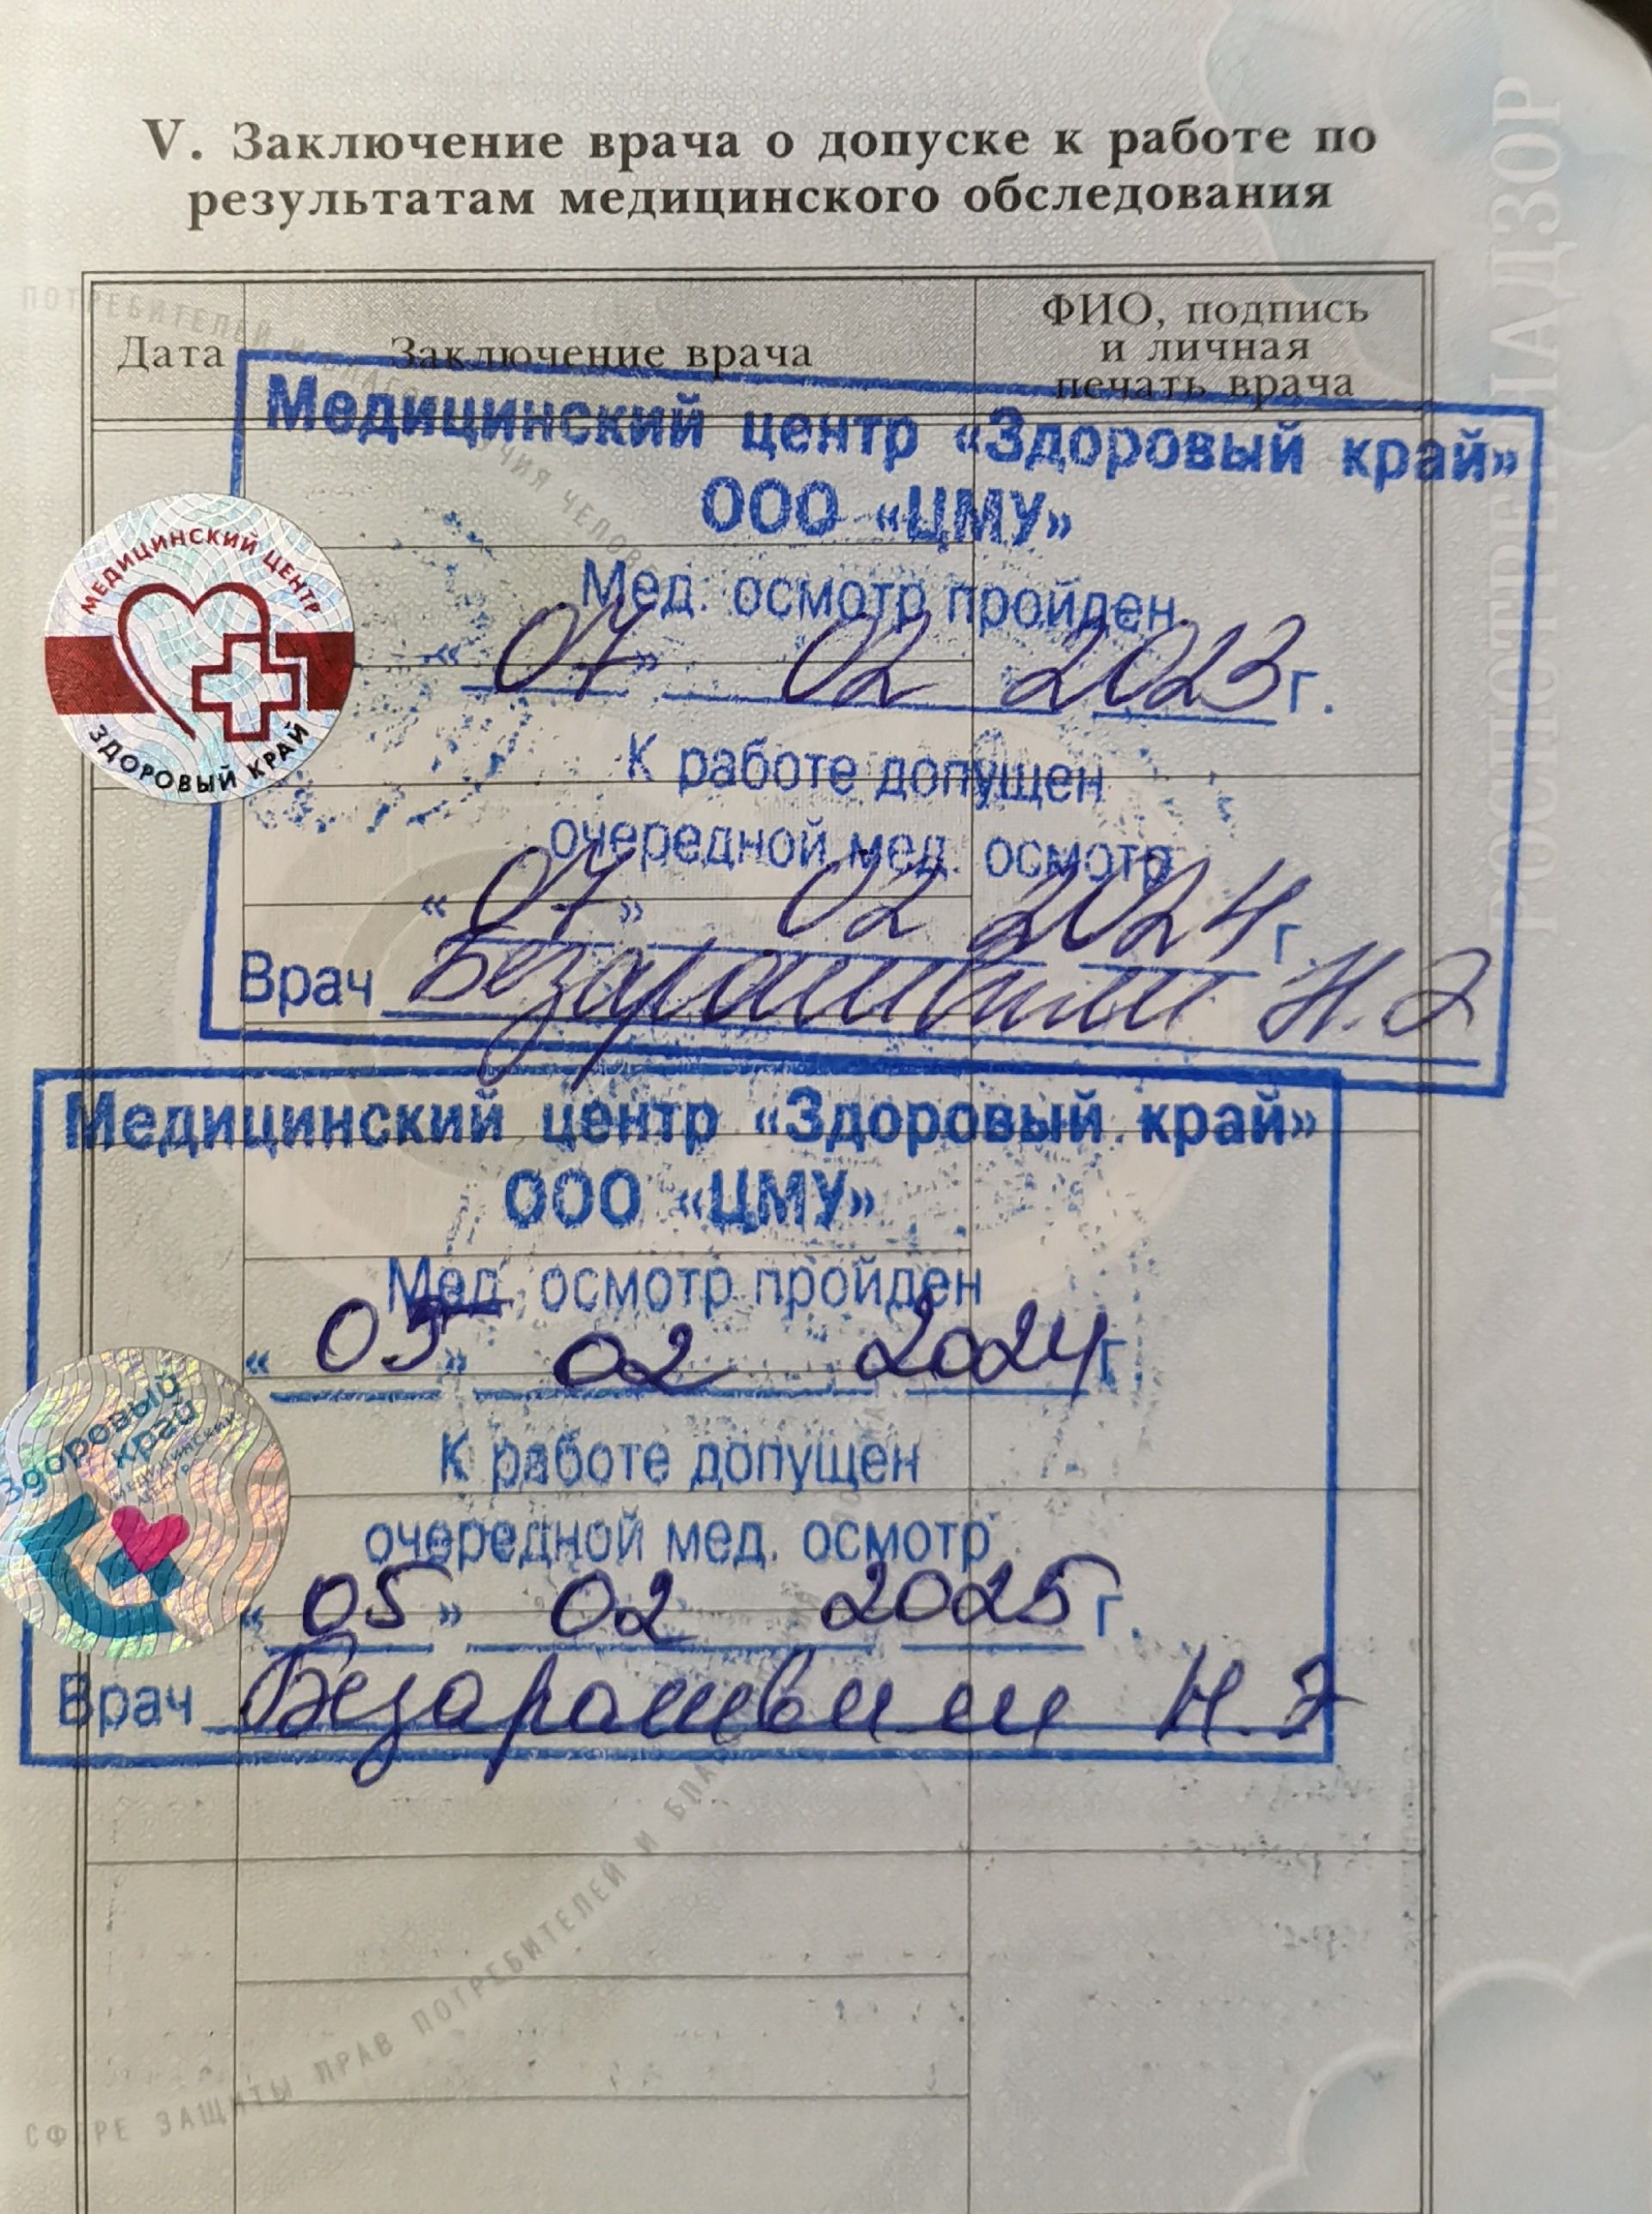 V. Заключение врача о допуске к работе по
результатам медицинского обследования
Дата
Заключение врача
ФИО, подпись
и личная
печать врача
Медицинский центр «Здоровый край»
ООО «ЦМУ»
Мед. осмотр пройден
« 07 » 02 2023 г.
К работе допущен
очередной мед. осмотр
« 07 » 02 2024 г.
Врач Безарашвили Н.Э
МЕДИЦИНСКИЙ ЦЕНТР
ЗДОРОВЫЙ КРАЙ
Медицинский центр «Здоровый край»
ООО «ЦМУ»
Мед. осмотр пройден
« 05 » 02 2024 г.
К работе допущен
очередной мед. осмотр
« 05 » 02 2025 г.
Врач Безарашвили Н.Э
Здоровый
край
МЕДИЦИНСКИЙ
ЦЕНТР
РОСПОТРЕБНАДЗОР
СФЕРЕ ЗАЩИТЫ ПРАВ ПОТРЕБИТЕЛЕЙ И
ПОТРЕБИТЕЛЕЙ